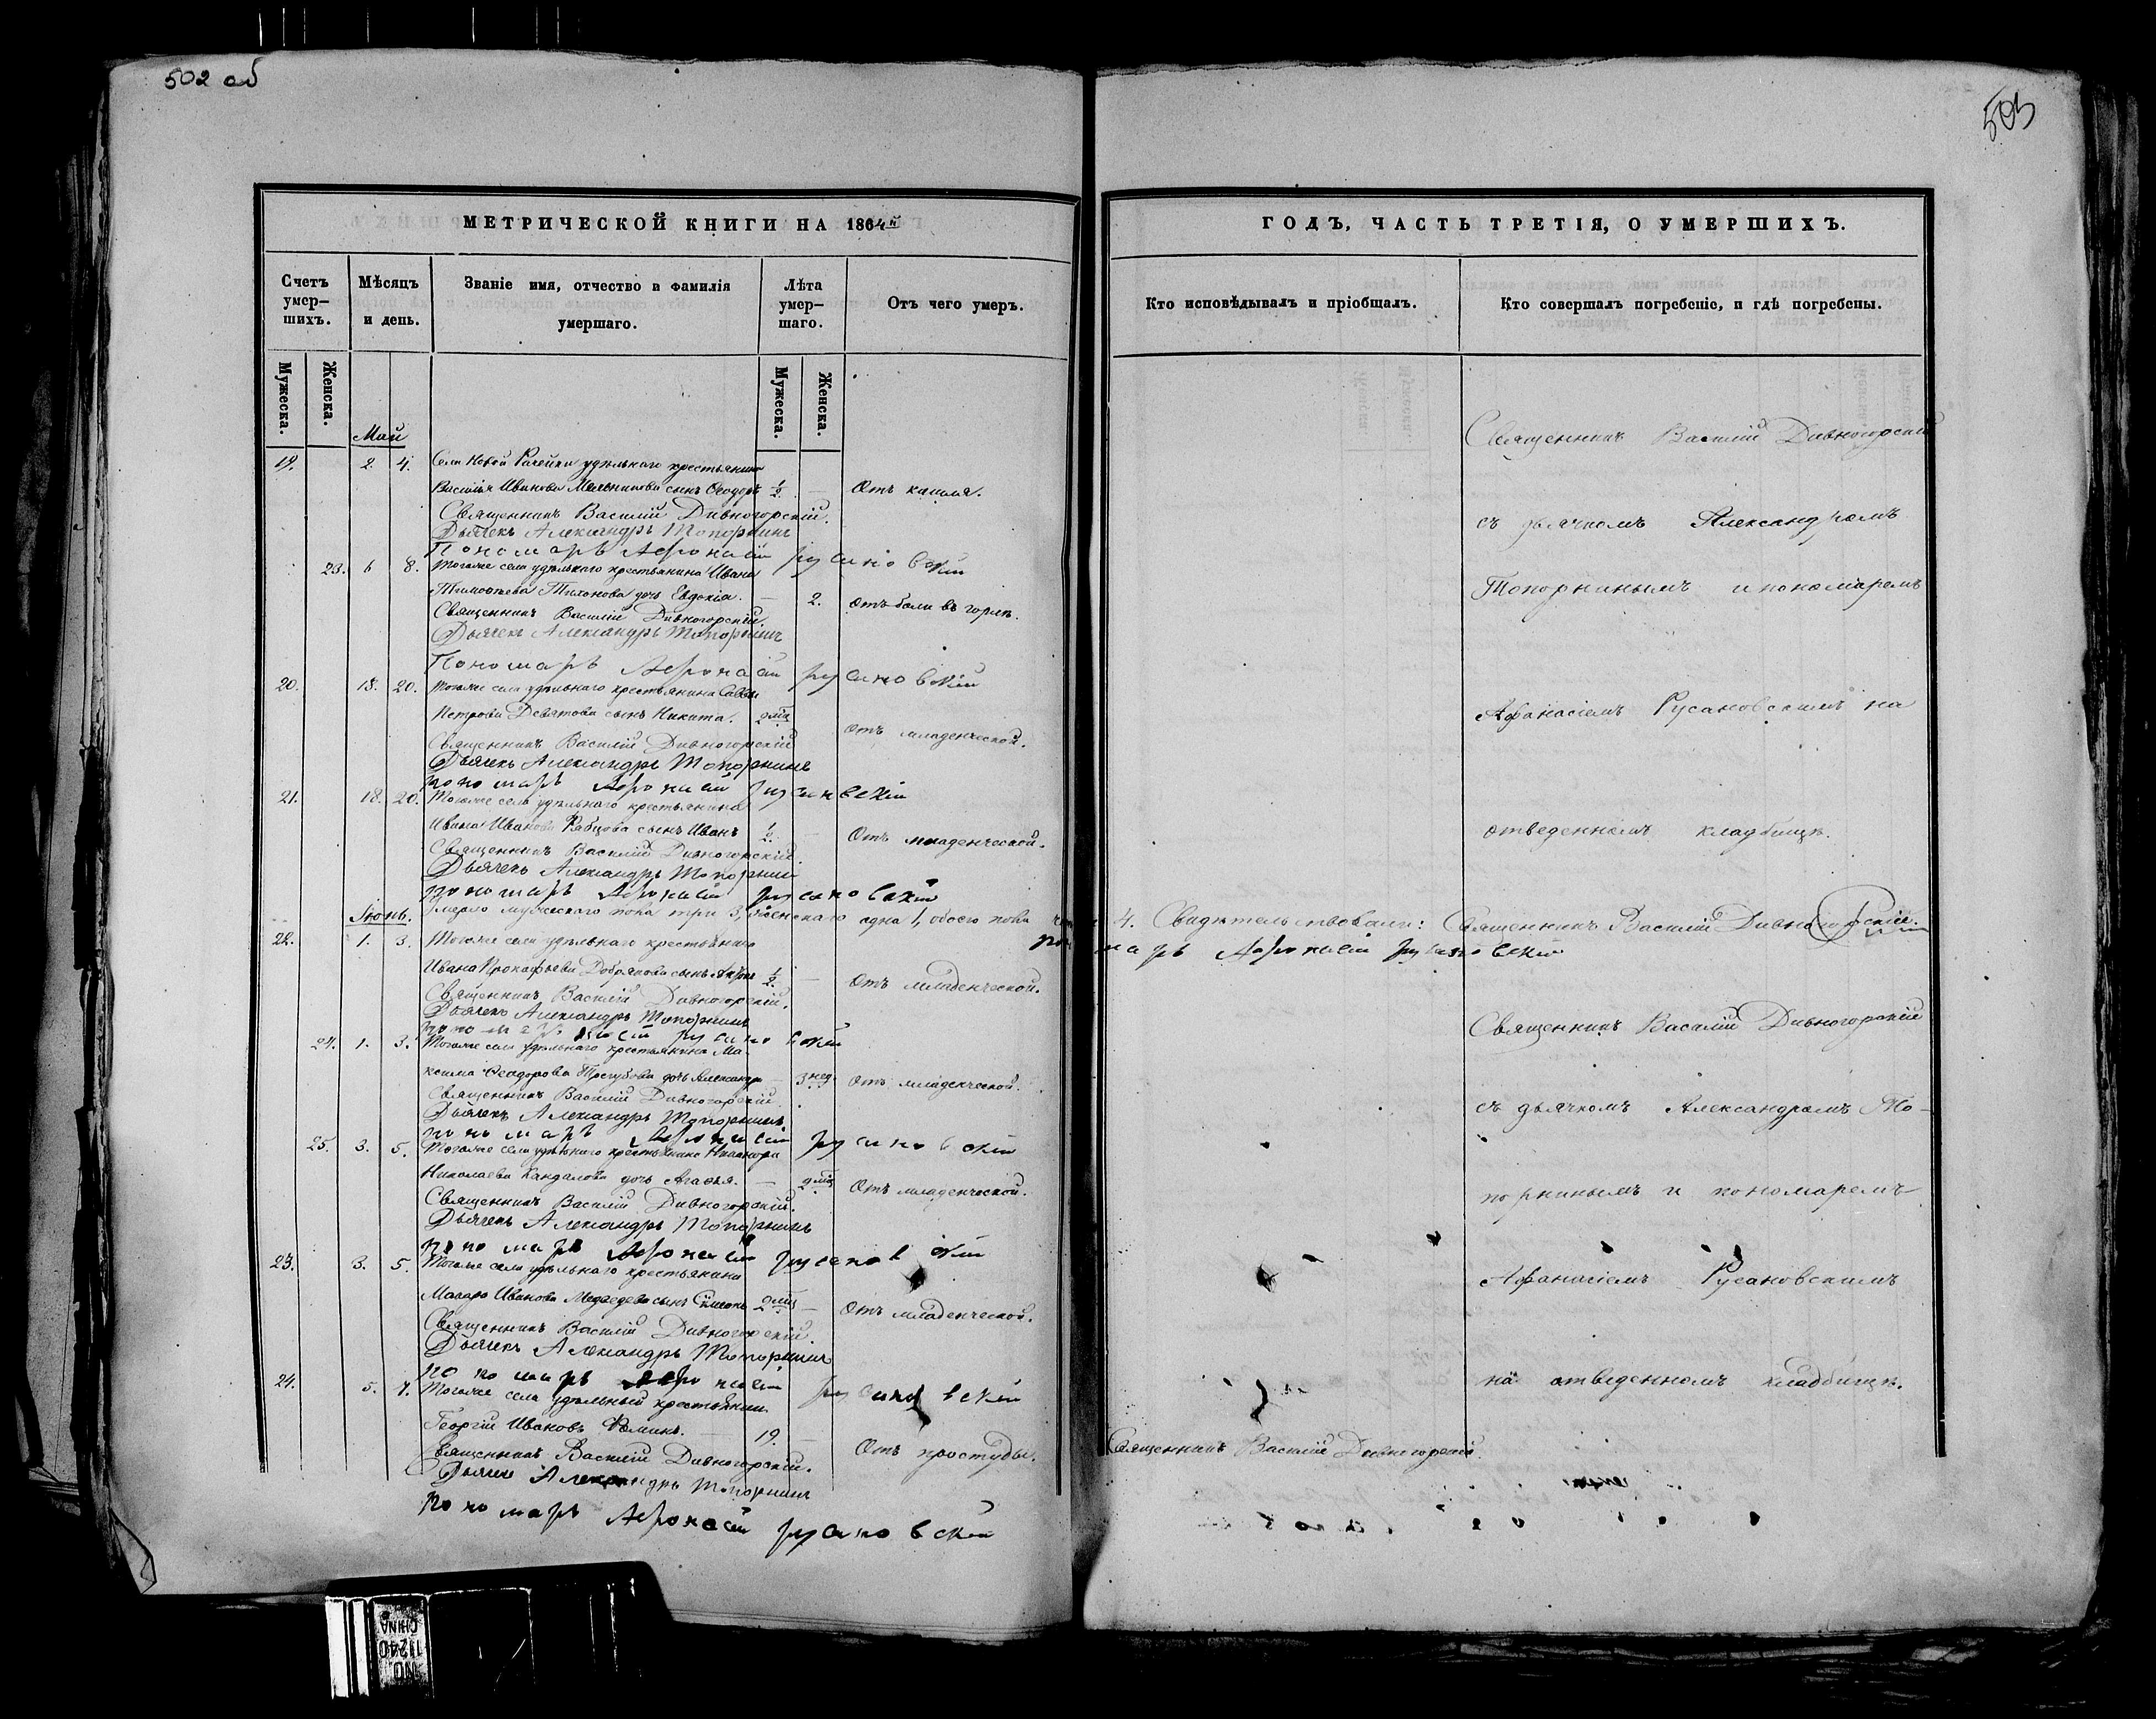 502 об
503
МЕТРИЧЕСКОЙ КНИГИ НА 1864й
ГОДЪ, ЧАСТЬ ТРЕТІЯ, О УМЕРШИХЪ.
Счетъ умер-шихъ.
Мѣсяцъ и день.
Званіе имя, отчество и фамилія умершаго.
Лѣта умер-шаго.
Отъ чего умеръ.
Кто исповѣдывалъ и пріобщалъ.
Кто совершалъ погребеніе, и гдѣ погребены.
Мужеска.
Женска.
Мужеска.
Женска.
Май
19. 2. 4. Села Новой Рачейки удѣльнаго крестьянина
Василья Иванова Мельникова сынъ Ѳеодоръ ½ — Отъ кашля.
Священникъ Василій Дивногорскій.
Дьячекъ Александръ Топорнинъ
Пономарь Афонасій русановскій
23. 6 8. Тогоже села удѣльнаго крестьянина Ивана
Тимоѳеева Тихонова дочь Евдокія. — 2. Отъ боли въ горлѣ.
Священникъ Василій Дивногорскій.
Дьячекъ Александръ Топорнинъ
Пономарь Афонасій русановскій
20. 18. 20. Тогоже села удѣльнаго крестьянина Саввы
Петрова Девятова сынъ Никита. 2 мѣс. Отъ младенческой.
Священникъ Василій Дивногорскій
Дьячекъ Александръ Топорнинъ
пономарь Афонасій русановскій
21. 18. 20. Тогоже села удѣльнаго крестьянина
Ивана Иванова Рябцова сынъ Иванъ ½ — Отъ младенческой.
Священникъ Василій Дивногорскій.
Дьячекъ Александръ Топорнинъ
пономарь Афонасій русановскій
Умерло мужескаго пола три 3, женскаго одна 1, обоего пола 4. Свидѣтельствовали: Священникъ Василій Дивногорскій.
пономарь Афонасій русановскій
Іюнь.
22. 1. 3. Тогоже села удѣльнаго крестьянина
Ивана Прокофьева Добрякова сынъ ½ — Отъ младенческой.
Священникъ Василій Дивногорскій.
Дьячекъ Александръ Топорнинъ
24. 1. 3. Тогоже села удѣльнаго крестьянина Ма-
ксима Ѳеодорова Трегубова дочь Александра — 3 нед. Отъ младенческой.
Священникъ Василій Дивногорскій
Дьячекъ Александръ Топорнинъ
пономарь Афонасій русановскій
25. 3. 5. Тогоже села удѣльнаго крестьянина Никанора
Николаева Кандалова дочь Агаѳья. — 2 мѣс. Отъ младенческой.
Священникъ Василій Дивногорскій.
Дьячекъ Александръ Топорнинъ
пономарь Афонасій русановскій
23. 3. 5. Тогоже села удѣльнаго крестьянина
Макара Иванова Медведева сынъ Симеонъ 2 мѣс. — Отъ младенческой.
Священникъ Василій Дивногорскій.
Дьячекъ Александръ Топорнинъ
пономарь Афонасій русановскій
24. 5. 7. Тогоже села удѣльный крестьянинъ
Георгій Ивановъ Ѳоминъ. — 19. — Отъ простуды.
Священникъ Василій Дивногорскій.
Дьячекъ Александръ Топорнинъ
пономарь Афонасій русановскій
Священникъ Василій Дивногорскій
съ дьячкомъ Александромъ
Топорнинымъ и пономаремъ
Афанасіемъ Русановскимъ на
отведенномъ кладбищѣ.
Священникъ Василій Дивногорскій
съ дьячкомъ Александромъ То-
порнинымъ и пономаремъ
Афанасіемъ Русановскимъ
на отведенномъ кладбищѣ.
Священникъ Василій Дивногорскій.
NO. 11240
CHINA